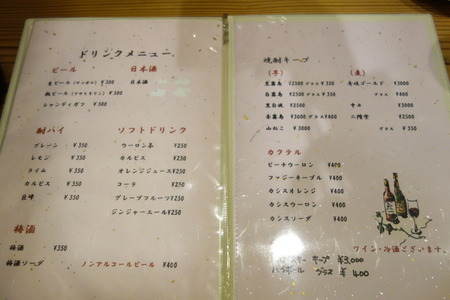 ドリンクメニュー
ビール
生ビール(サッポロ) ¥500
瓶ビール(アサヒキリン) ¥500
シャンディガフ ¥500
日本酒
日本酒
酎ハイ
プレーン ¥350
レモン ¥350
ライム ¥350
カルピス ¥350
巨峰 ¥350
ソフトドリンク
ウーロン茶 ¥250
カルピス ¥250
オレンジジュース ¥250
コーラ ¥250
グレープフルーツ ¥250
ジンジャーエール ¥250
梅酒
梅酒 ¥350
梅酒ソーダ
ノンアルコールビール ¥400
焼酎キープ
(芋)
黒霧島 ¥2500 グラス¥350
白霧島 ¥2500 グラス¥350
黒白波 ¥2500
赤霧島 ¥3000 グラス¥400
山ねこ ¥3000
(麦)
壱岐ゴールド ¥3000
グラス ¥400
中々 ¥3000
二階堂 ¥2500
カクテル
ピーチウーロン ¥400
ファジーネーブル ¥400
カシスオレンジ ¥400
カシスウーロン ¥400
カシスソーダ ¥400
ワイン・冷酒ございます。
キープ ¥3,000
ハイボール グラス ¥400